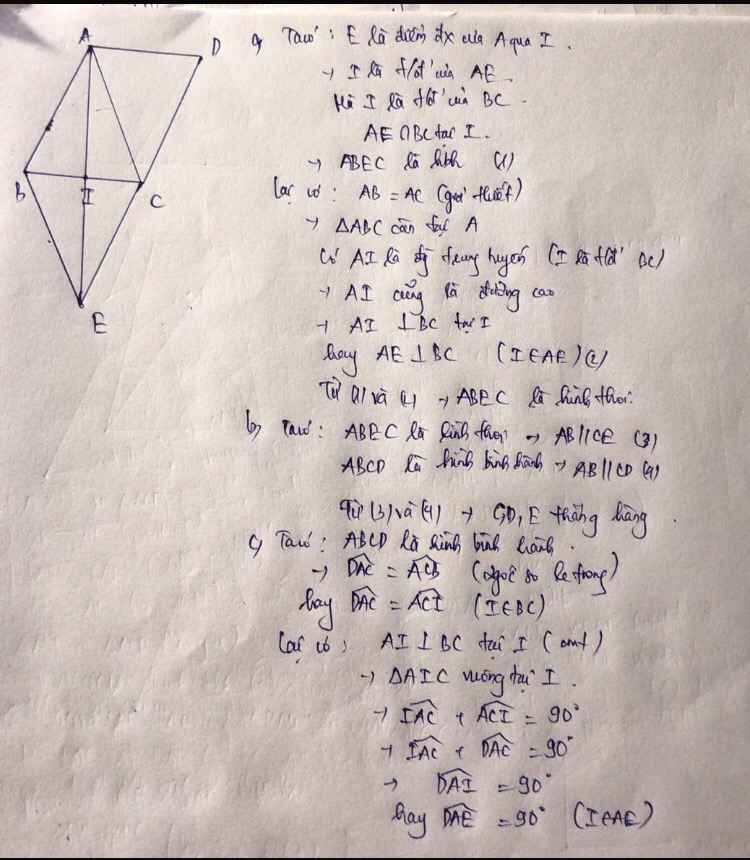 A
D
B
I
C
E
a, Ta có: E là điểm đx của A qua I.
→ I là t/đ' của AE.
Mà I là t/đ' của BC.
AE ∩ BC tại I.
→ ABEC là hbh (1)
Lại có: AB = AC (giả thiết)
→ ΔABC cân tại A
Có AI là đg trung tuyến (I là t/đ' BC)
→ AI cũng là đường cao
→ AI ⊥ BC tại I
hay AE ⊥ BC (I ∈ AE) (2)
Từ (1) và (2) → ABEC là hình thoi.
b, Ta có: ABEC là hình thoi → AB // CE (3)
ABCD là hình bình hành → AB // CD (4)
Từ (3) và (4) → C, D, E thẳng hàng.
c, Ta có: ABCD là hình bình hành.
→ \widehat{DAC} = \widehat{ACB} (góc so le trong)
hay \widehat{DAC} = \widehat{ACI} (I ∈ BC)
Lại có: AI ⊥ BC tại I (cmt)
→ ΔAIC vuông tại I.
→ \widehat{IAC} + \widehat{ACI} = 90°
→ \widehat{IAC} + \widehat{DAC} = 90°
→ \widehat{DAI} = 90°
hay \widehat{DAE} = 90° (I ∈ AE)